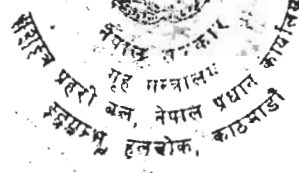 नेपाल सरकार
गृह मन्त्रालय
सशस्त्र प्रहरी बल, नेपाल प्रधान कार्यालय
हलचोक, काठमाडौं